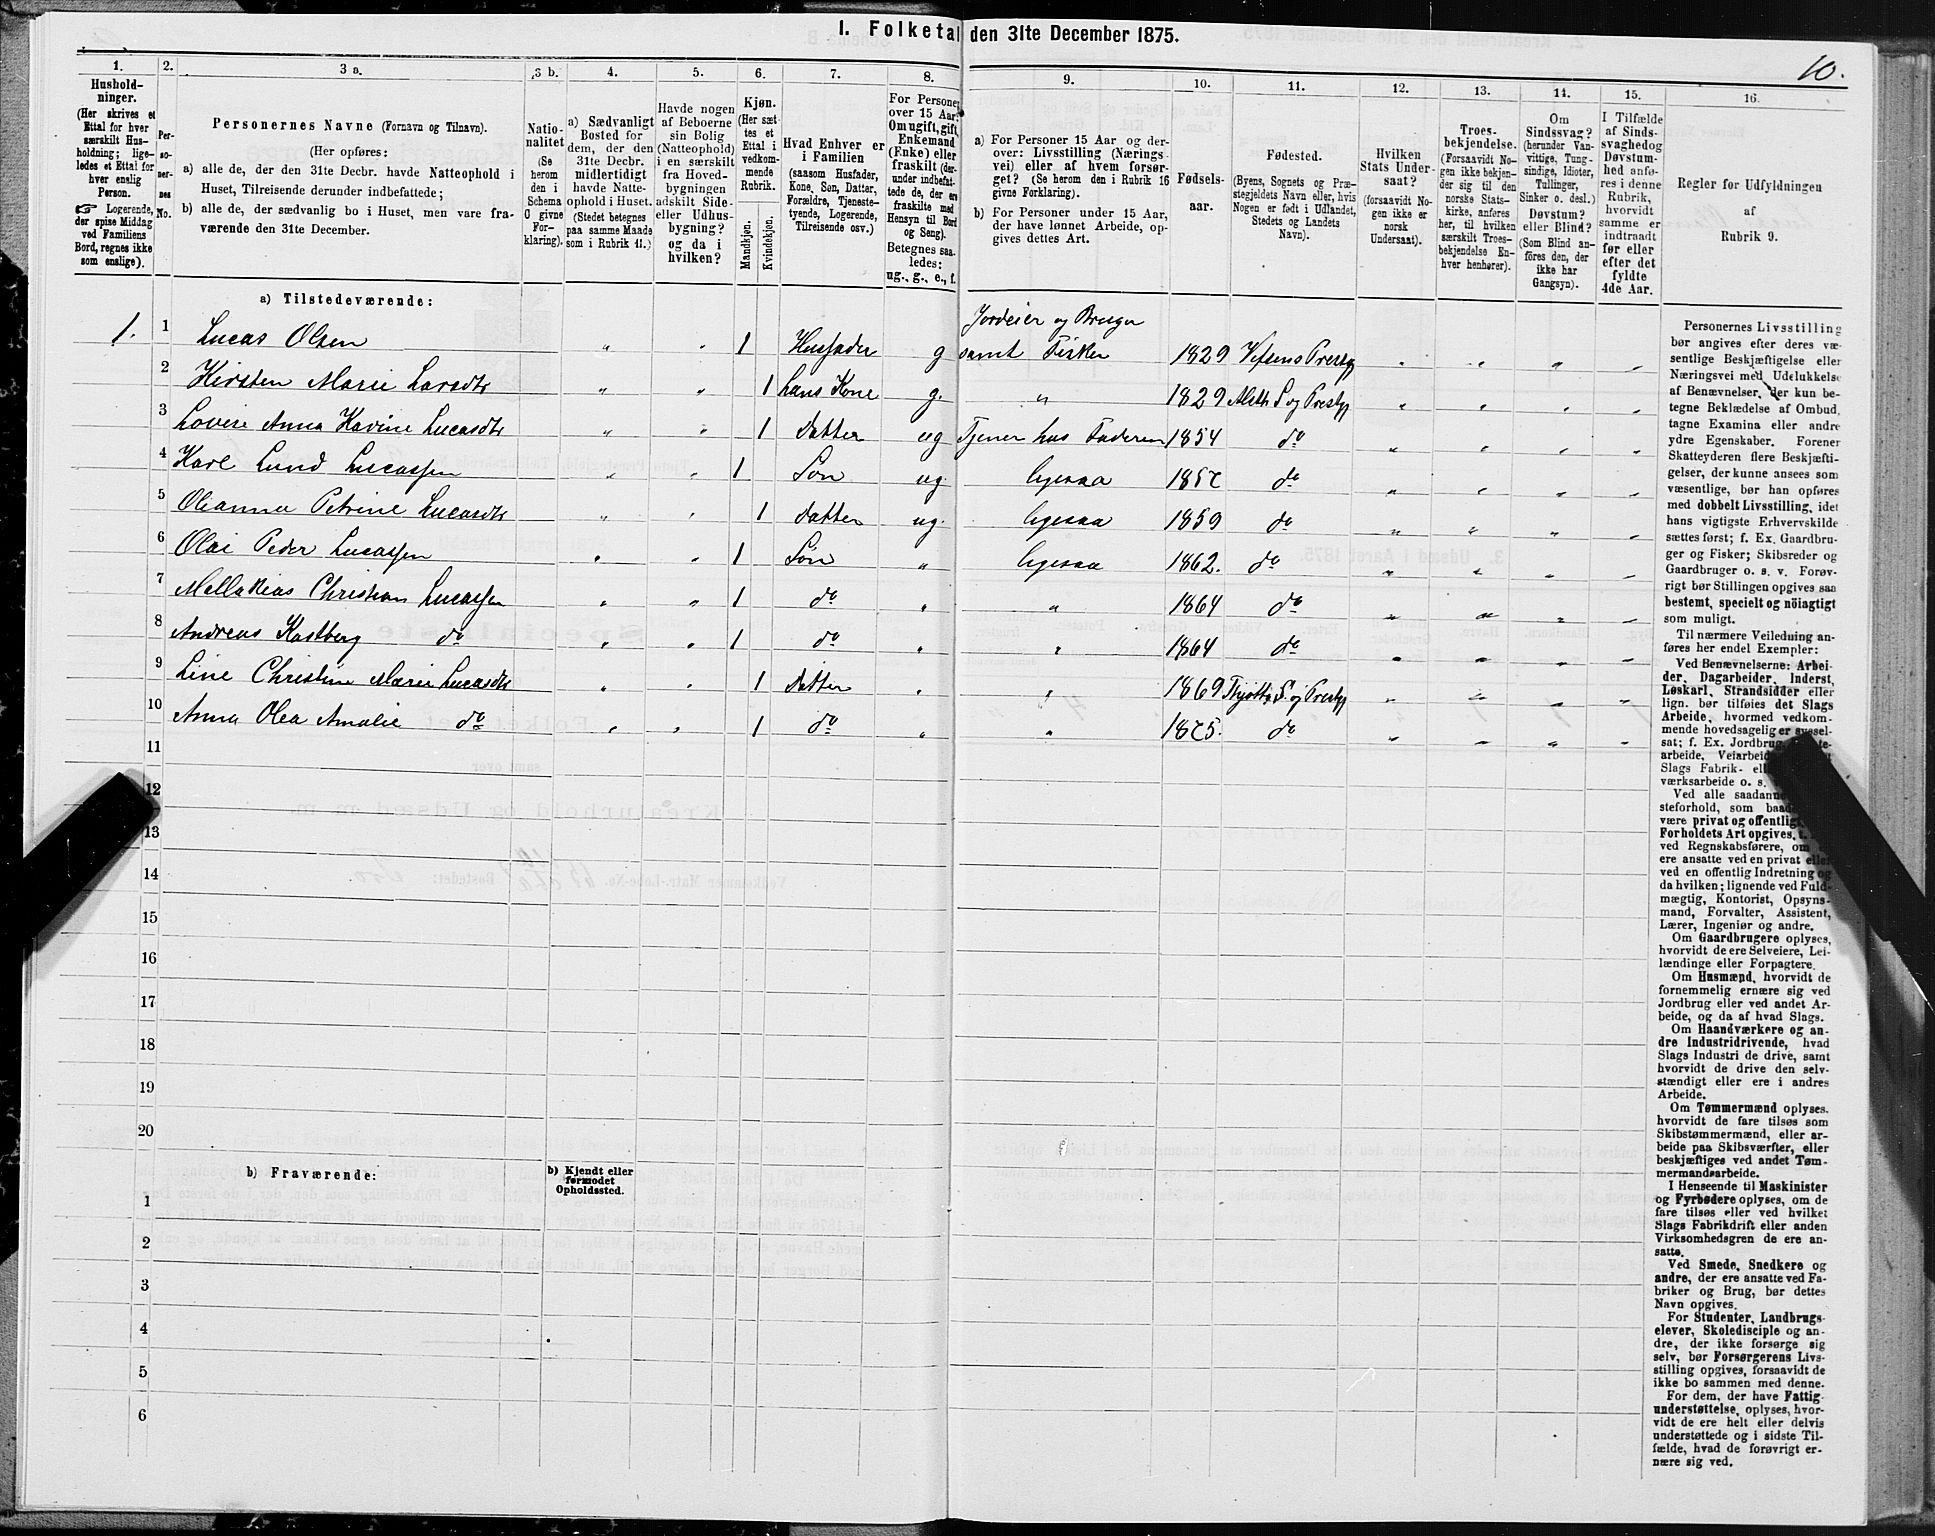 1. Folketal den 31te December 1875.
10.
1. 2. 3 a. 3 b. 4. 5. 6. 7. 8. 9. 10. 11. 12. 13. 14. 15. 16.
Hushold-
ninger.
(Her skrives et
Ettal for hver
særskilt Hus-
holdning; lige-
ledes et Ettal for
hver enslig
Person.
☞ Logerende,
der spise Middag
ved Familiens
Bord, regnes ikke
som enslige).
Per-
so-
ner-
nes
No.
Personernes Navne (Fornavn og Tilnavn).
(Her opføres:
a) alle de, der den 31te Decbr. havde Natteophold i
Huset, Tilreisende derunder indbefattede;
b) alle de, der sædvanlig bo i Huset, men vare fra-
værende den 31te December.
Natio-
nalitet
(Se
herom
den i
Schema
C givne
For-
klaring).
a) Sædvanligt
Bosted for
dem, der den
31te Decbr.
midlertidigt
havde Natte-
ophold i Huset.
(Stedet betegnes
paa samme Maade
som i Rubrik 11.)
Havde nogen
af Beboerne
sin Bolig
(Natteophold)
i en særskilt
fra Hoved-
bygningen
adskilt Side-
eller Udhus-
bygning?
og da i
hvilken?
Kjøn.
(Her sæt-
tes et
Ettal i
vedkom-
mende
Rubrik.
Mandkjøn.
Kvindekjøn.
Hvad Enhver er
i Familien
(saasom Husfader,
Kone, Søn, Datter,
Forældre, Tjeneste-
tyende, Logerende,
Tilreisende osv.)
For Personer
over 15 Aar:
Om ugift, gift,
Enkemand
(Enke) eller
fraskilt (der-
under indbefat-
tede de, der ere
fraskilte med
Hensyn til Bord
og Seng).
Betegnes saa-
ledes:
ug., g., e., f.
a) For Personer 15 Aar og der-
over: Livsstilling (Nærings-
vei) eller af hvem forsør-
get? (Se herom den i Rubrik 16
givne Forklaring).
b) For Personer under 15 Aar,
der have lønnet Arbeide, op-
gives dettes Art.
Fødsels-
aar.
Fødested.
(Byens, Sognets og Præ-
stegjeldets Navn eller, hvis
Nogen er født i Udlandet,
Stedets og Landets
Navn).
Hvilken
Stats Under-
saat?
(forsaavidt No-
gen ikke er
norsk
Undersaat).
Troes-
bekjendelse.
(Forsaavidt No-
gen ikke bekjen-
der sig til den
norske Stats-
kirke, anføres
her, til hvilken
særskilt Troes-
bekjendelse En-
hver henhører).
Om
Sindssvag?
(herunder Van-
vittige, Tung-
sindige, Idioter,
Tullinger,
Sinker o. desl.)
Døvstum?
eller Blind?
(Som Blind an-
føres den, der
ikke har
Gangsyn).
I Tilfælde
af Sinds-
svaghed og
Døvstum-
hed anfø-
res i denne
Rubrik,
hvorvidt
samme er
indtraadt
før eller
efter det
fyldte
4de Aar.
Regler for Udfyldningen
af
Rubrik 9.
a) Tilstedeværende:
Jordeier og Bruger
1. 1 Lucas Olsen " " 1 Husfader g samt Fisker 1829 Vefsens Prestg " " " "
2 Kirsten Marie Larsdtr " " 1 hans Kone g. " 1829 Alsth S og Prestgj " " " "
3 Lovise Anna Havine Lucasdtr " " 1 Datter ug Tjener hos Faderen 1854 do " " " "
4 Karl Lund Lucassen " " 1 Søn ug. ligesaa 1857 do " " " "
5 Olianna Petrine Lucasdtr " " 1 Datter ug. ligesaa 1859 do " " " "
6 Olai Peder Lucassen " " 1 Søn " ligesaa 1862. do " " " "
7 Mallakias Christian Lucassen " " 1 do " " 1864 do " " " "
8 Andreas Kastberg do " " 1 do " " 1864 do " " " "
9 Line Christine Marie Lucasdtr " " 1 Datter " " 1869 Thjøttø S. og Prestgj " " " "
10 Anna Olea Amalie do " " 1 do " " 1875. do " " " "
11
12
13
14
15
16
17
18
19
20
b) Fraværende:
b) Kjendt eller
formodet
Opholdssted.
1
2
3
4
5
6
Personernes Livsstilling
bør angives efter deres væ-
sentlige Beskjæftigelse eller
Næringsvei med Udelukkelse
af Benævnelser, der kun be-
tegne Beklædelse af Ombud,
tagne Examina eller andre
ydre Egenskaber. Forener
Skatteyderen flere Beskjæfti-
gelser, der kunne ansees som
væsentlige, bør han opføres
med dobbelt Livsstilling, idet
hans vigtigste Erhvervskilde
sættes først; f. Ex. Gaardbru-
ger og Fisker; Skibsreder og
Gaardbruger o. s. v. Forøv-
rigt bør Stillingen opgives saa
bestemt, specielt og nöiagtigt
som muligt.
Til nærmere Veiledning an-
føres her endel Exempler:
Ved Benævnelserne: Arbei-
der, Dagarbeider, Inderst,
Løskarl, Strandsidder eller
lign. bør tilføies det Slags
Arbeide, hvormed vedkom-
mende hovedsagelig er syssel-
sat; f. Ex. Jordbrug,
arbeide, Veiarbeide
Slags Fabrik-
værksarbeide o. s.
Ved alle saadanne
steforhold, som
være privat og offentligt
Forholdets Art opgives,
ved Regnskabsførere, om
ere ansatte ved en privat eller
ved en offentlig Indretning og
da hvilken; lignende ved Fuld-
mægtig, Kontorist, Opsyns-
mand, Forvalter, Assistent,
Lærer, Ingeniør og andre.
Om Gaardbrugere oplyses,
hvorvidt de ere Selveiere, Lei-
lændinge eller Forpagtere.
Om Husmænd, hvorvidt de
fornemmelig ernære sig ved
Jordbrug eller ved andet Ar-
beide, og da af hvad Slags.
Om Haandværkere og an-
dre Industridrivende, hvad
Slags Industri de drive, samt
hvorvidt de drive den selv-
stændigt eller ere i andres
Arbeide.
Om Tømmermænd oplyses,
hvorvidt de fare tilsøs som
Skibstømmermænd, eller ar-
beide paa Skibsværfter, eller
beskjæftiges ved andet Tøm-
mermandsarbeide.
I Henseende til Maskinister
og Fyrbødere oplyses, om de
fare tilsøs eller ved hvilket
Slags Fabrikdrift eller anden
Virksomhedsgren de ere an-
satte.
Ved Smede, Snedkere og
andre, der ere ansatte ved Fa-
briker og Brug, bør dettes
Navn opgives.
For Studenter, Landbrugs-
elever, Skoledisciple og an-
dre, der ikke forsørge sig
selv, bør Forsørgerens Livs-
stilling opgives, forsaavidt de
ikke bo sammen med denne.
For dem, der have Fattig-
understøttelse, oplyses, hvor-
vidt de ere helt eller delvis
understøttede og i sidste Til-
fælde, hvad de forøvrigt er-
nære sig ved.